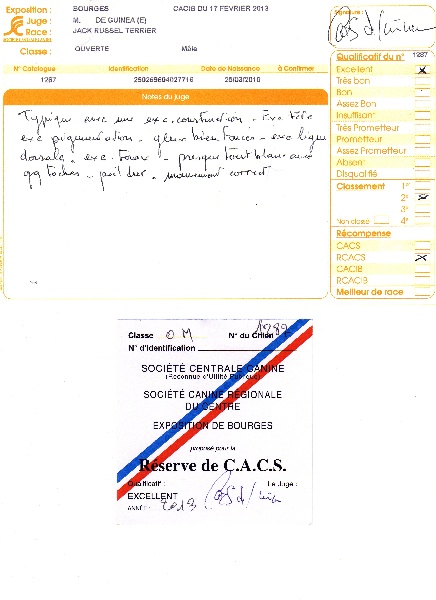 Exposition : BOURGES CACIB DU 17 FEVRIER 2013
Juge : M. DE GUINEA (E)
Race : JACK RUSSEL TERRIER
Classe : OUVERTE Mâle
N° Catalogue Identification Date de Naissance à Confirmer
1287 250269604027716 25/03/2010
Notes du juge
Typique avec une exc. construction. Exc tête
exc pigmentation. yeux bien foncés. exc ligne
dorsale. exc. fouet. presque tout blanc avec
qq tâches. poil dur. mouvement correct
Signature :
Qualificatif du n° 1287
Excellent X
Très bon
Bon
Assez Bon
Insuffisant
Très Prometteur
Prometteur
Assez Prometteur
Absent
Disqualifié
Classement 1er
2e X
3e
Non classé 4e
Récompense
CACS
RCACS X
CACIB
RCACIB
Meilleur de race
Classe O M N° du Chien 1287
N° d'Identification
SOCIÉTÉ CENTRALE CANINE
(Reconnue d'Utilité Publique)
SOCIÉTÉ CANINE RÉGIONALE
DU CENTRE
EXPOSITION DE BOURGES
proposé pour la
Réserve de C.A.C.S.
Qualificatif : Le Juge :
EXCELLENT
ANNÉE : 2013